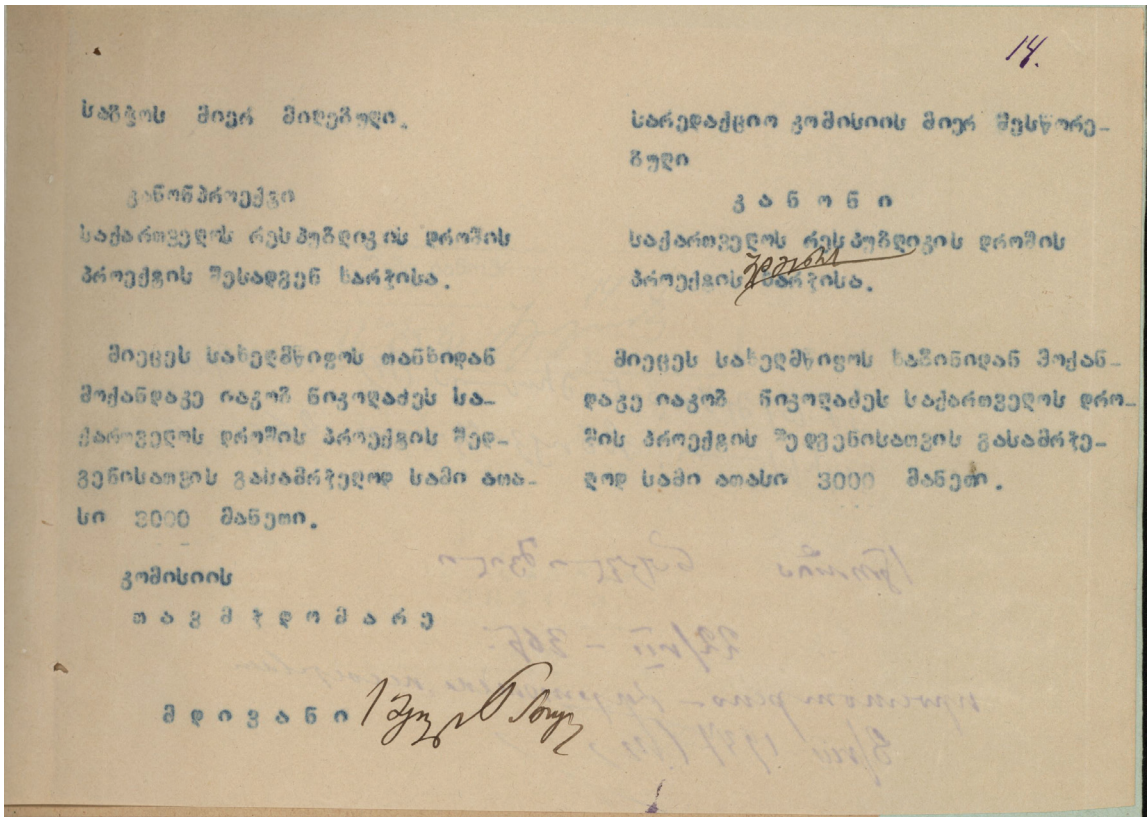 14.
საბჭოს მიერ მიღებული.
კანონპროექტი
საქართველოს რესპუბლიკის დროშის
პროექტის შესადგენ ხარჯისა.
მიეცეს სახელმწიფოს თანხიდან
მოქანდაკე იაკობ ნიკოლაძეს სა-
ქართველოს დროშის პროექტის შედ-
გენისათვის გასამრჯელოდ სამი ათა-
სი 3000 მანეთი.
კომისიის
თ ა ვ მ ჯ დ ო მ ა რ ე
მ დ ი ვ ა ნ ი
სარედაქციო კომისიის მიერ შესწორე-
ბული
კ ა ნ ო ნ ი
საქართველოს რესპუბლიკის დროშის
პროექტის ხარჯისა.
მიეცეს სახელმწიფოს ხაზინიდან მოქან-
დაკე იაკობ ნიკოლაძეს საქართველოს დრო-
შის პროექტის შედგენისათვის გასამრჯე-
ლოდ სამი ათასი 3000 მანეთი.